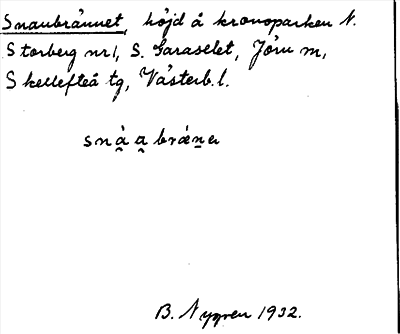 Snaubrånnet, höjd å kronoparken N.
Storberg nr 1, S. Garaselet, Jörn m,
Skellefteå tg, Västerb. l.
B. Nygren 1932.